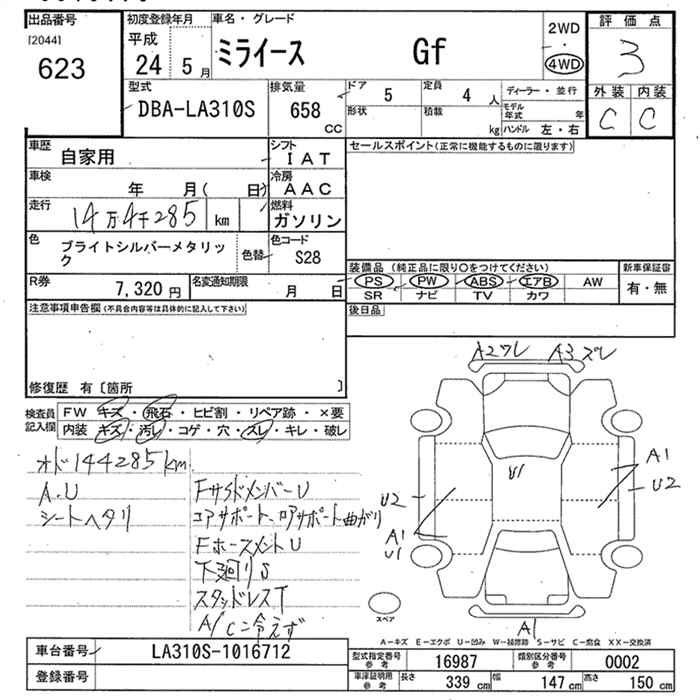 出品番号
[2044]
623
初度登録年月
平成
24 5 月
車名・グレード
ミライース Gf
2WD
・
4WD
評価点
3
外装 内装
C C
型式
DBA-LA310S
排気量
658
CC
ドア
5
定員
4 人
形状
積載
kg
ディーラー・並行
モデル年式 年
ハンドル 左・右
車歴
自家用
シフト
IAT
車検
年 月( 日)
冷房
AAC
走行
14万4千285 km
燃料
ガソリン
色
ブライトシルバーメタリック
色替
色コード
S28
R券
7,320 円
名変通知期限
月 日
セールスポイント(正常に機能するものに限ります)
装備品 (純正品に限り○をつけてください)
PS PW ABS エアB AW
SR ナビ TV カワ
新車保証書
有・無
後日品
注意事項申告欄(不具合内容等は具体的に記入して下さい)
修復歴 有〔箇所 〕
検査員記入欄
FW キズ・飛石・ヒビ割・リペア跡・×要
内装 キズ・汚レ・コゲ・穴・スレ・キレ・破レ
オド144285km
A.U
シートヘタリ
FサイドメンバーU
コアサポート、ロアサポート曲がり
FホースメントU
下廻りS
スタッドレスT
A/C冷えず
A2ワレ A3ズレ
U1
A1
U2
U2
A1
U1
A1
スペア
A-キズ E-エクボ U-凹み W-補修跡 S-サビ C-腐食 XX-交換済
車台番号
LA310S-1016712
登録番号
型式指定番号
参考
16987
類別区分番号
参考
0002
車庫証明用
参考
長さ
339 cm
幅
147 cm
高さ
150 cm